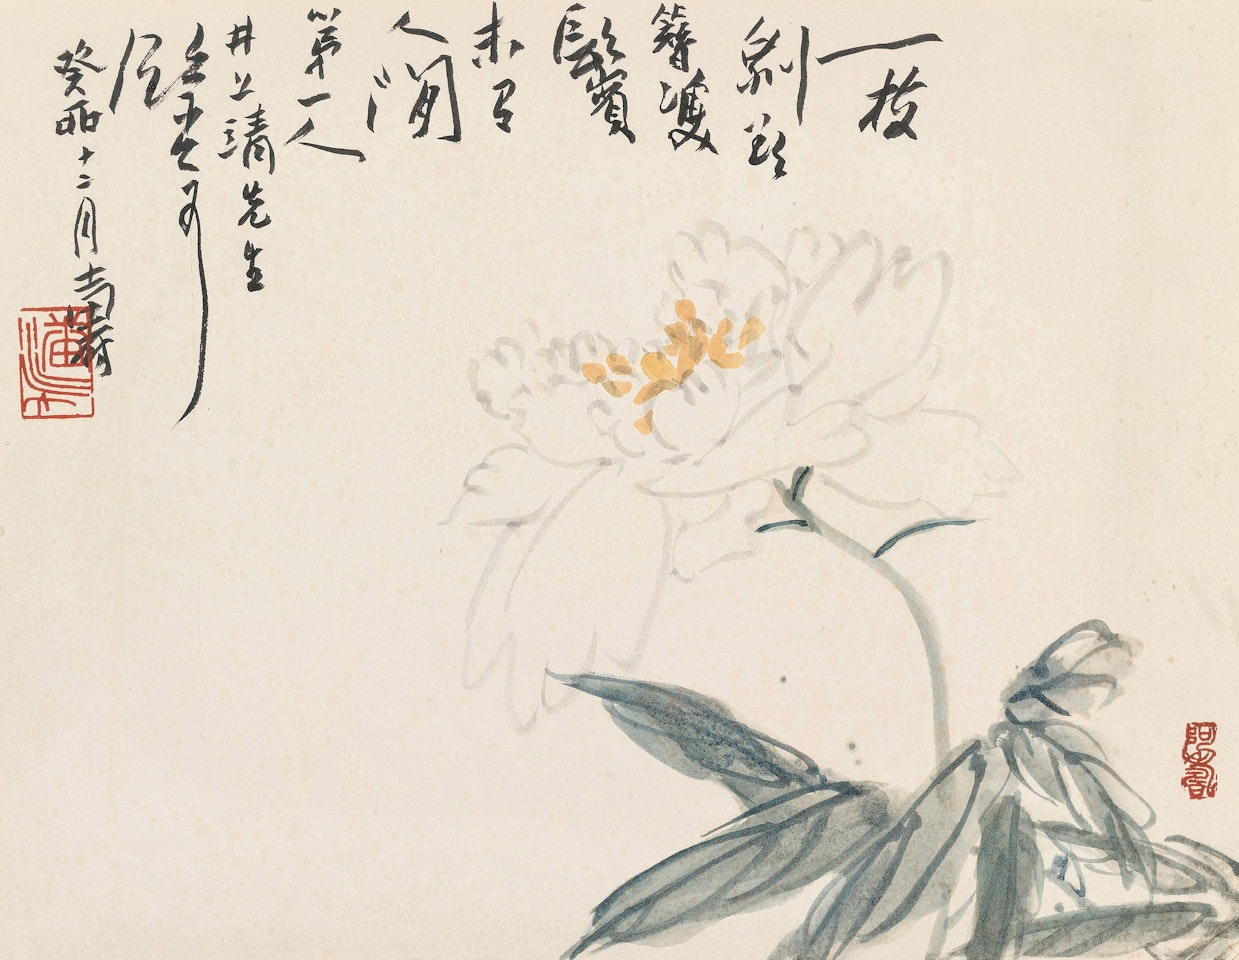 一枝
剩欲
簪雙
鬢
未有
人間
第一人
井上清先生
癸酉十二月
阿壽